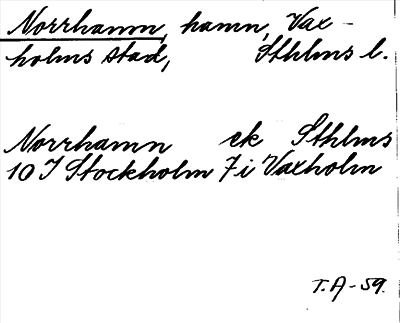 Norrhamn, hamn, Vax-
holms stad, Sthlms l.
Norrhamn ek Sthlms
10 I Stockholm 7 i Vaxholm
T.A-59.